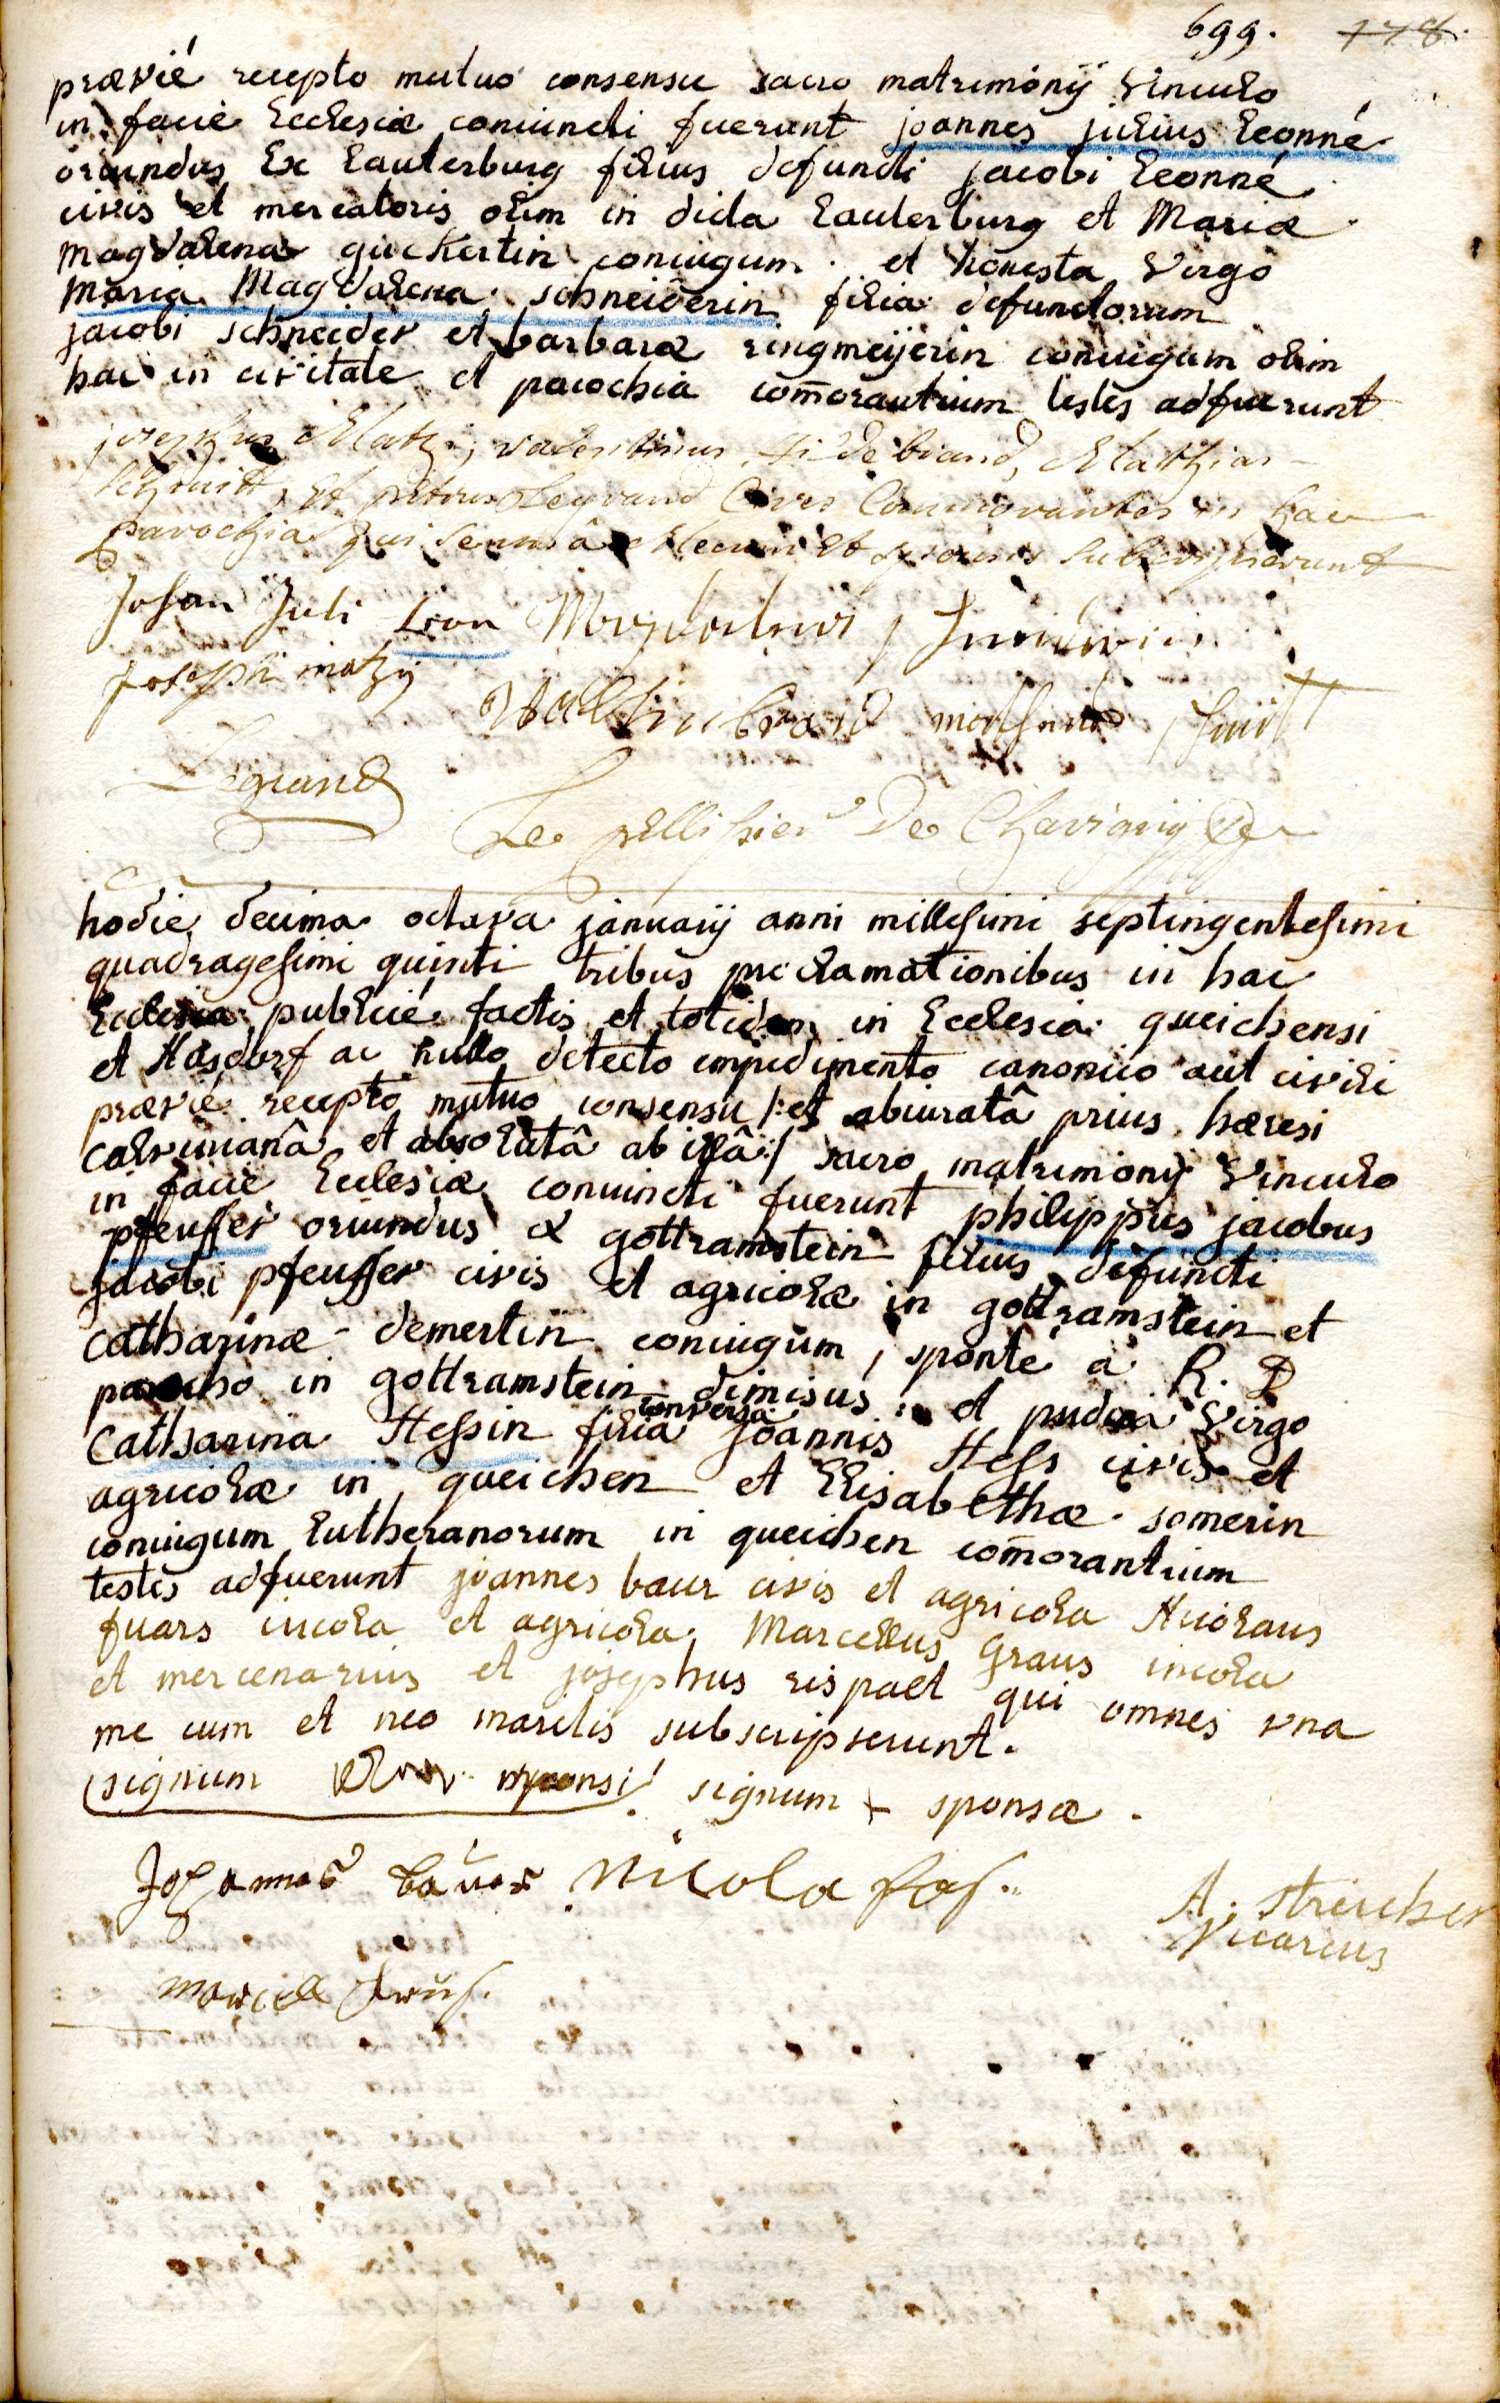 699. 178.
prævié recepto mutuo consensu sacro matrimonij vinculo
in facie Ecclesiæ coniuncti fuerunt joannes julius Leonné
oriundus Ex Lauterburg filius defuncti jacobi Leonné
civis et mercatoris olim in dicta Lauterburg et Mariæ
Magdalenæ guckertin coniugum. et honesta virgo
Maria Magdalena schneiderin filia defunctorum
jacobi schneider et barbaræ ringmeÿerin coniugum olim
hac in civitate et parochia com̄orantium testes adfuerunt
josephus Matzi, valentinus hildebrand, Matthias
schmitt, et petrus Legrand Cives Commorantes in hac
parochia qui se unâ Mecum Et sponsis subscripserunt
Johan Juli Leon Magdaleni
Joseph matzÿ
Legrand
Le pellissier De Chavigny
hodie decima octava januarij anni millesimi septingentesimi
quadragesimi quinti tribus proclamationibus in hac
Ecclesia publicé factis et totidem in Ecclesia queichensi
et Nusdorf ac nullo detecto impedimento canonico aut civili
prævié recepto mutuo consensu /: et abiuratâ prius hæresi
calvinianâ et absolutâ ab illâ :/ sacro matrimonij vinculo
in facie Ecclesiæ coniuncti fuerunt philippus jacobus
pfeuffer oriundus ex gottramstein filius defuncti
jacobi pfeuffer civis et agricolæ in gottramstein et
catharinæ demertin coniugum, sponté a R. D
parocho in gottramstein dimisus : et pudica virgo
conversa
Catharina Hessin filia joannis Hess civis et
agricolæ in queichen et Elisabethæ somerin
coniugum Lutheranorum in queichen com̄orantium
testes adfuerunt joannes baur civis et agricola Nicolaus
fuars incola et agricola Marcellus Graus incola
et mercenarius et josephus rispaet qui omnes una
me cum et neo maritis subscripserunt.
signum sponsi signum + sponsæ.
Johannes bauer Nicola fas.
A. streicher
Vicarius
marcell